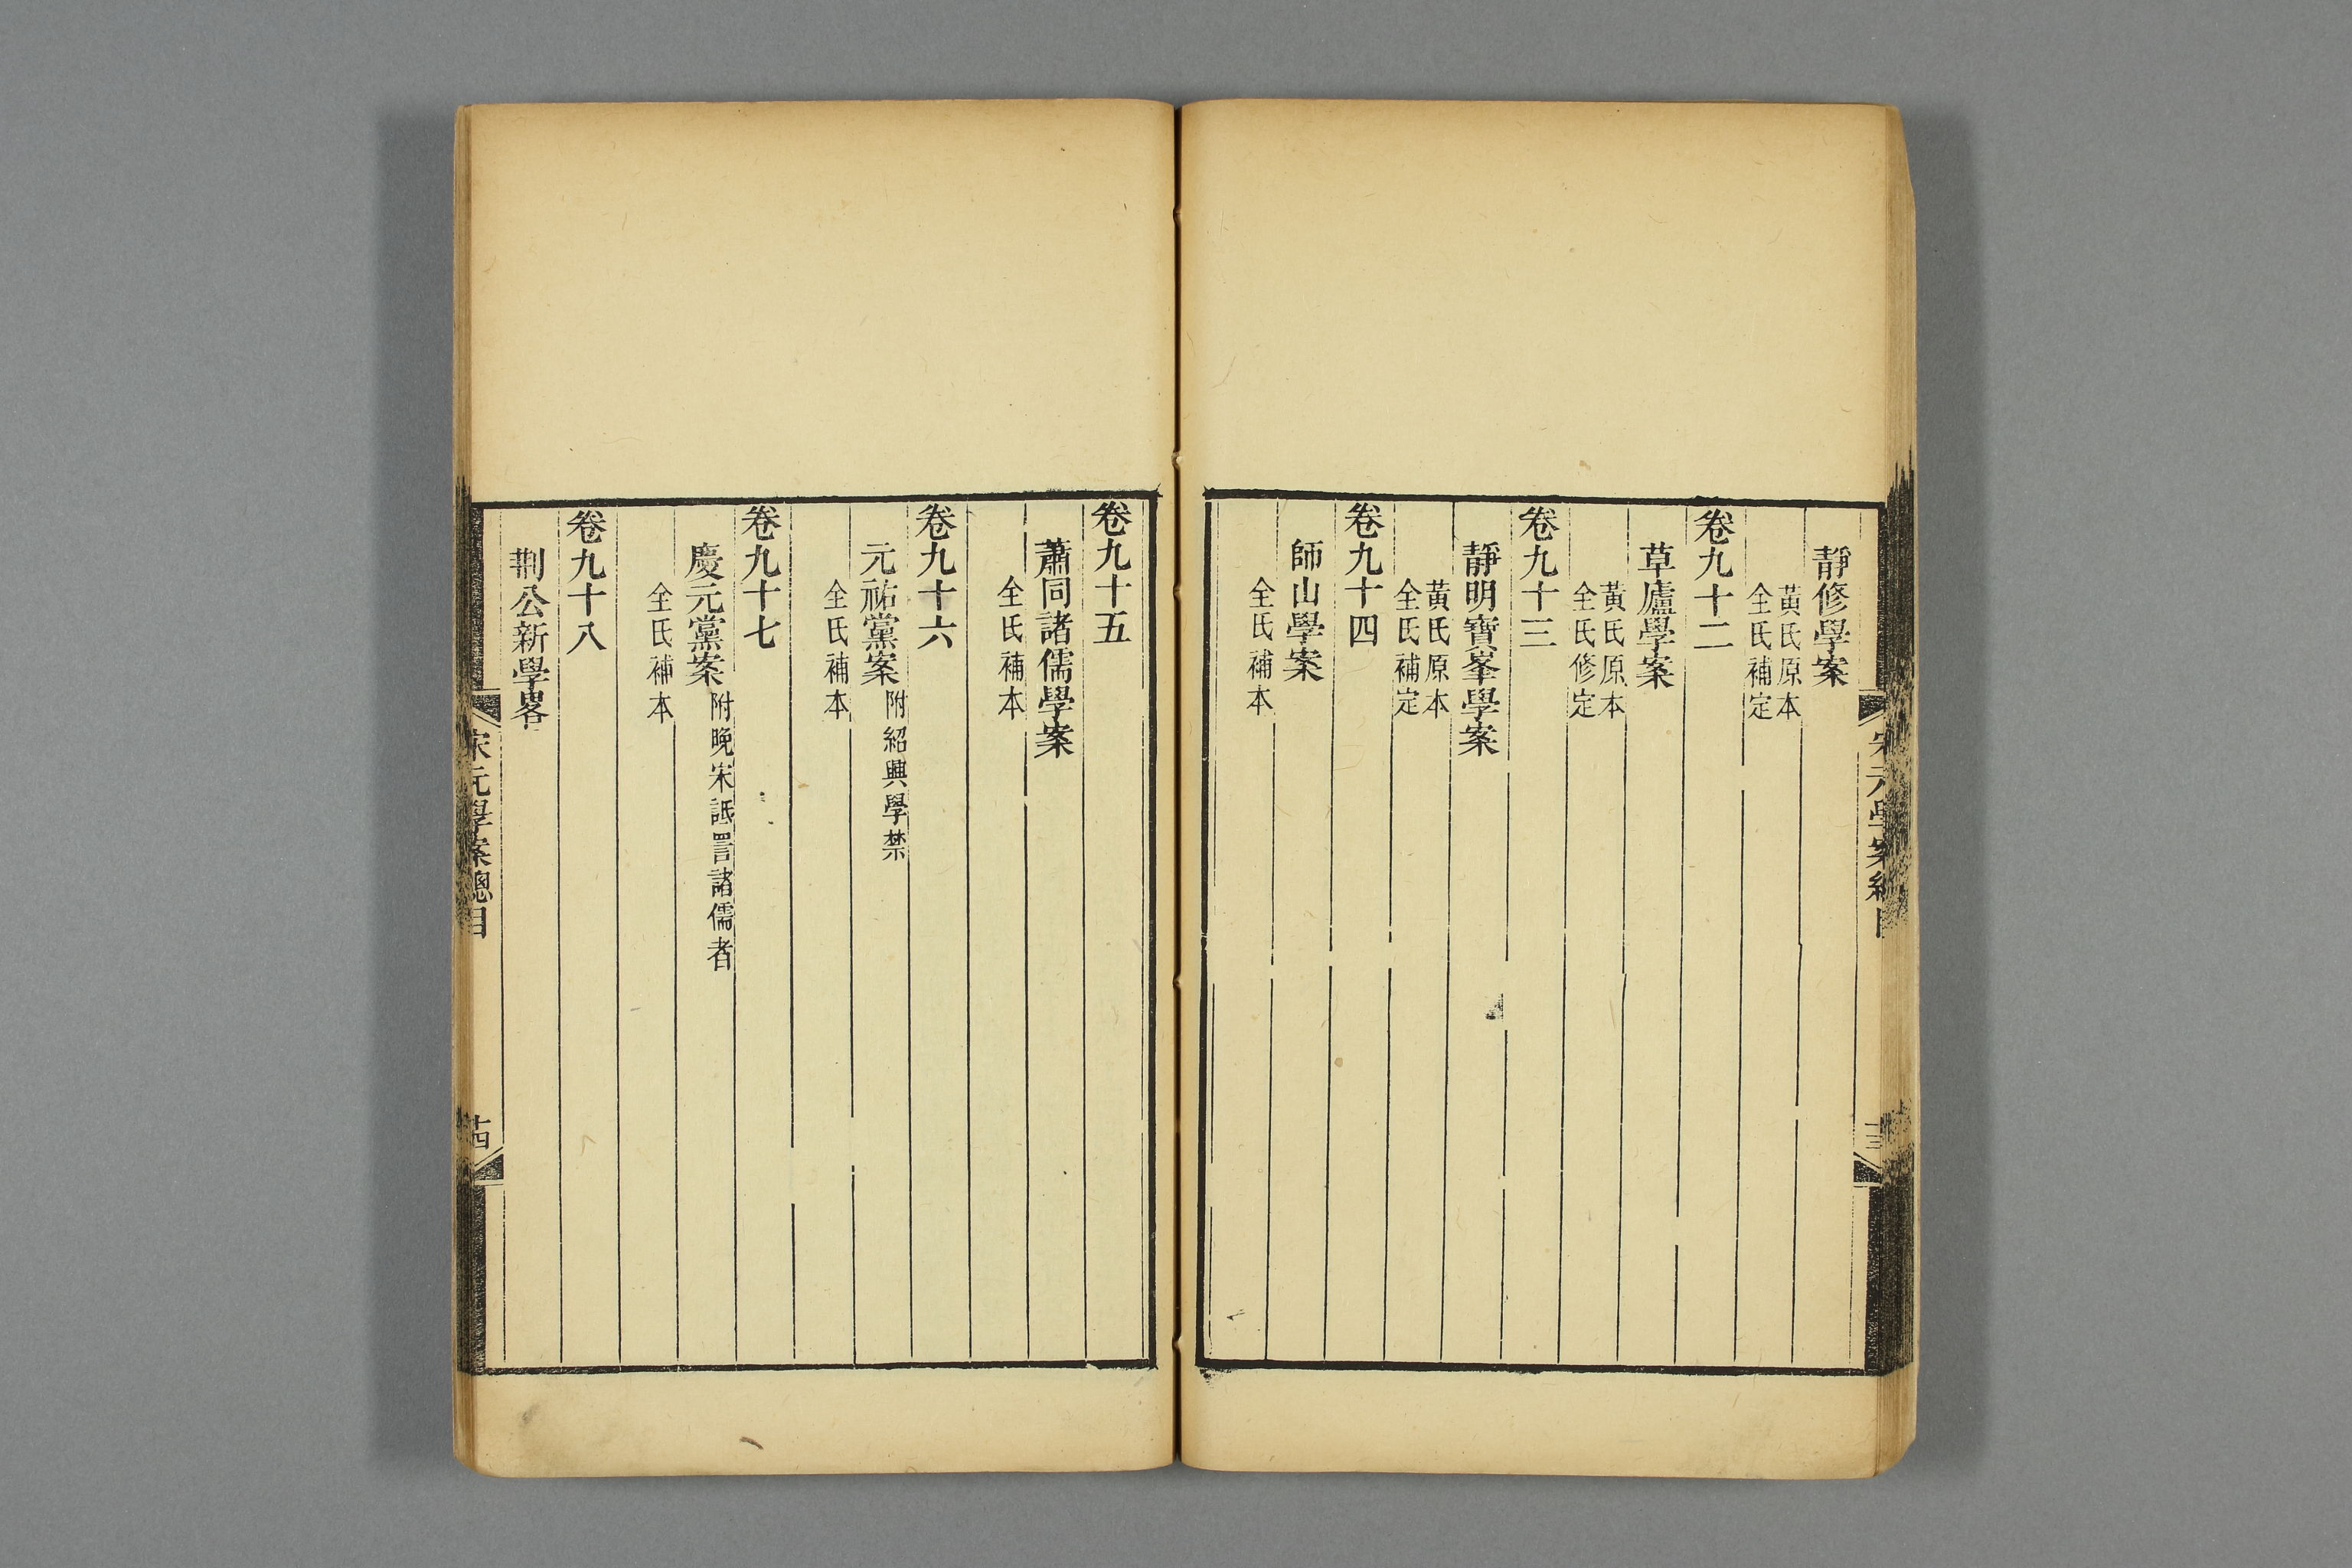 靜修學案
黃氏原本
全氏補定
卷九十二
草廬學案
黃氏原本
全氏修定
卷九十三
靜明寶峯學案
黃氏原本
全氏補定
卷九十四
師山學案
全氏補本
卷九十五
蕭同諸儒學案
全氏補本
卷九十六
元祐黨案附紹興學禁
全氏補本
卷九十七
慶元黨案附晚宋詆詈諸儒者
全氏補本
卷九十八
荆公新學畧
宋元學案總目
十四